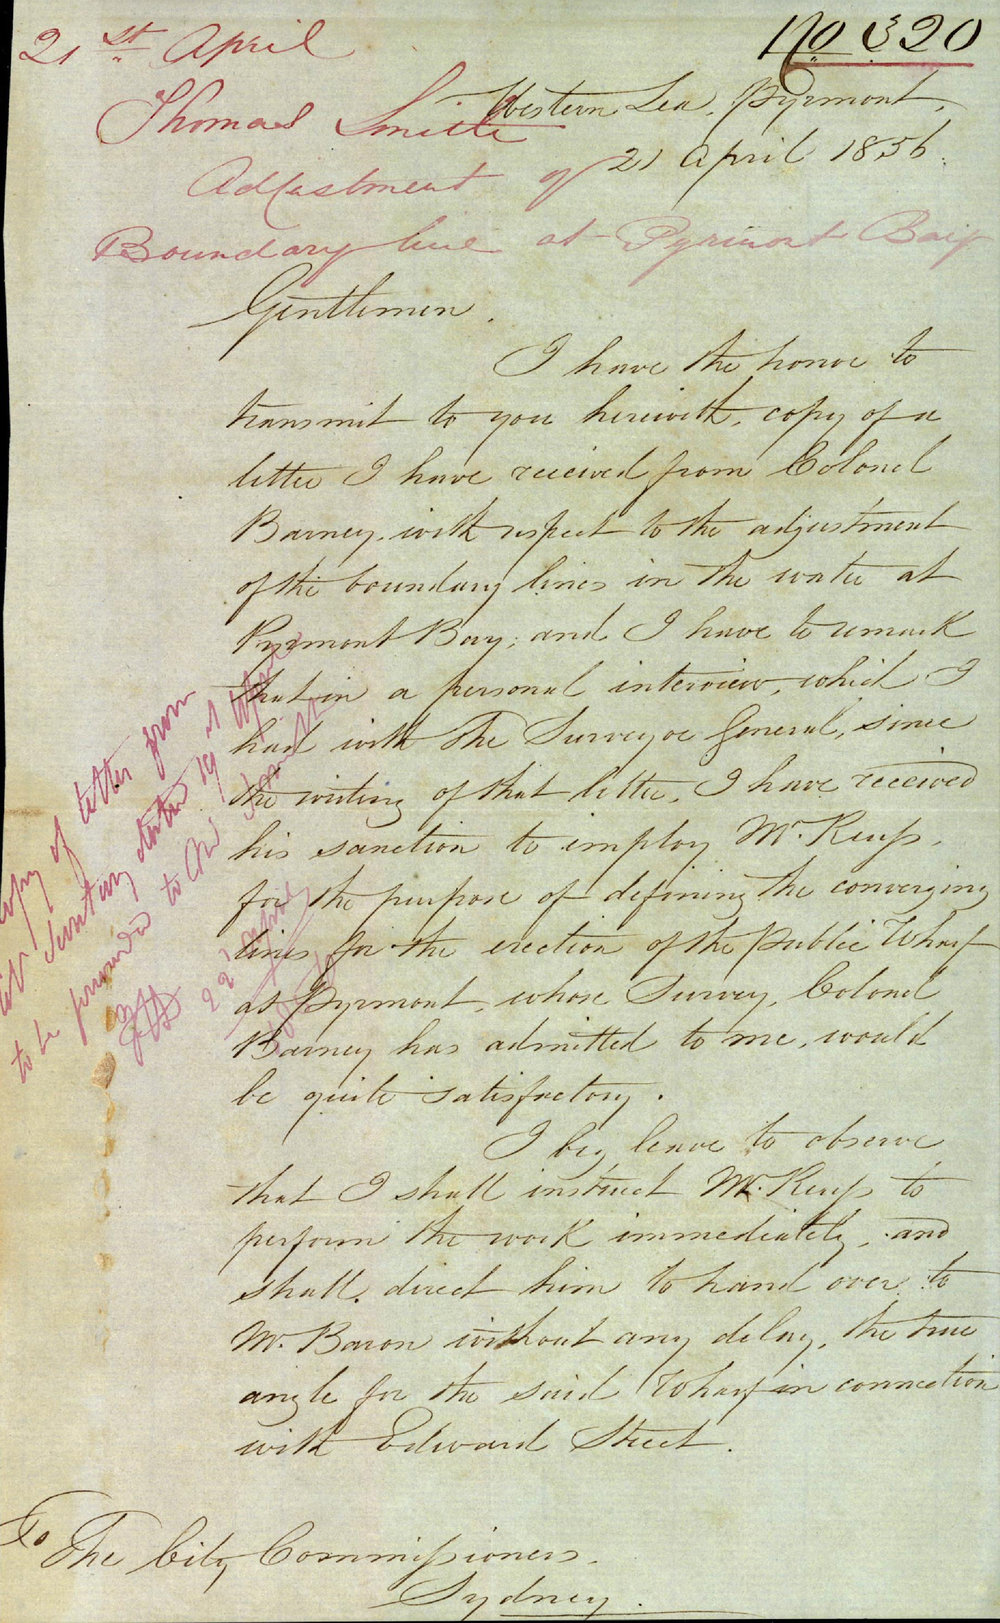 No 320
21st April
Thomas Smith
Adjustment of
Boundary line at Pyrmont Bay
Western Lea, Pyrmont,
21 April 1856.
Gentlemen.
I have the honor to
transmit to you herewith, copy of a
letter I have received from Colonel
Barney, with respect to the adjustment
of the boundary lines in the water at
Pyrmont Bay; and I have to remark
that in a personal interview, which I
had with The Surveyor General, since
the writing of that letter, I have received
his sanction to employ Mr.
for the purpose of defining the converging
lines for the erection of the Public Wharf
at Pyrmont, whose Survey, Colonel
Barney has admitted to me, would
be quite satisfactory.
I beg leave to observe
that I shall instruct Mr. to
perform the work immediately, and
shall direct him to hand over to
Mr. Baron without any delay, the true
angle for the said Wharf in connection
with Edward Street.
To The City Commissioners.
Sydney.
Copy of letter from
dated 19
to be to
22 April